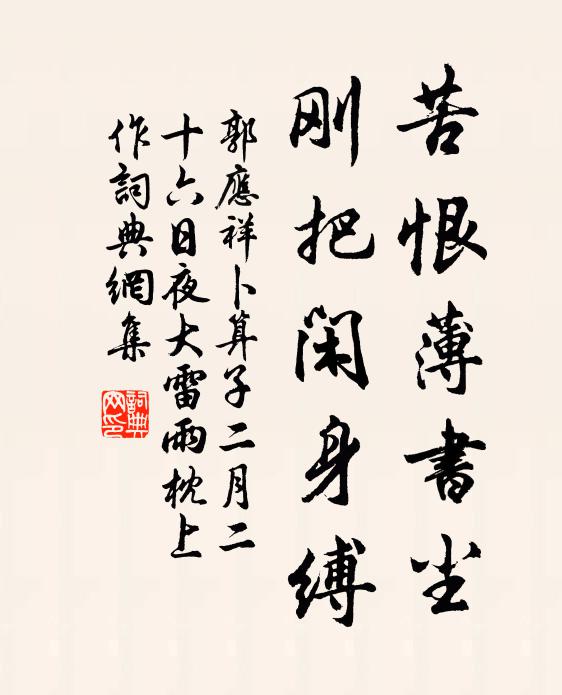 苦恨薄書尘
刚把闲身縛
郭應祥卜算子二月二
十六日夜大雷雨枕上
作詞典網集
詞典
网印